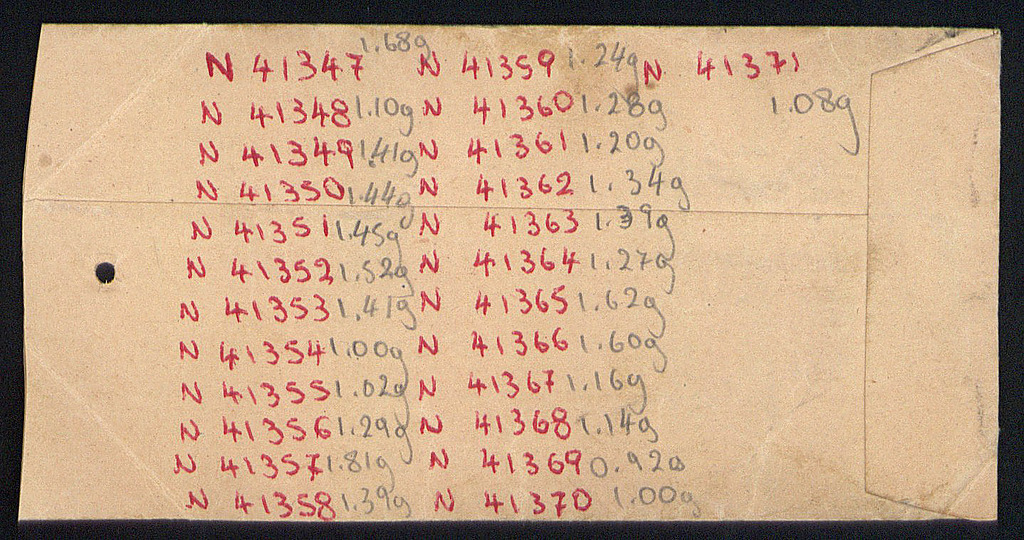 N 41347 1.68g N 41359 1.24g N 41371
N 41348 1.10g N 41360 1.28g 1.08g
N 41349 1.41g N 41361 1.20g
N 41350 1.44g N 41362 1.34g
N 41351 1.45g N 41363 1.39g
N 41352 1.52g N 41364 1.27g
N 41353 1.41g N 41365 1.62g
N 41354 1.00g N 41366 1.60g
N 41355 1.02g N 41367 1.16g
N 41356 1.29g N 41368 1.14g
N 41357 1.81g N 41369 0.92g
N 41358 1.39g N 41370 1.00g